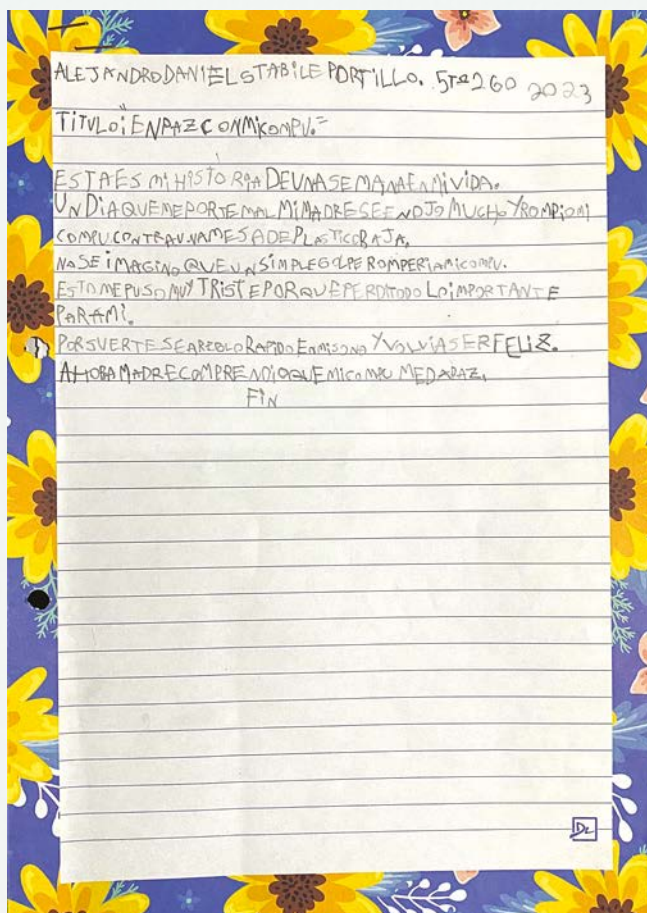 ALEJANDRO DANIEL STABILE PORTILLO. 5to 260 2023
TITULO: "EN PAZ CON MI COMPU."
ESTA ES MI HISTORIA DE UNA SEMANA EN MI VIDA.
UN DIA QUE ME PORTE MAL MI MADRE SE ENOJO MUCHO Y ROMPIO MI
COMPU CONTRA UNA MESA DE PLASTICO BAJA,
NO SE IMAGINO QUE UN SIMPLE GOLPE ROMPERIA MI COMPU.
ESTO ME PUSO MUY TRISTE PORQUE PERDI TODO LO IMPORTANTE
PARA MI.
POR SUERTE SE AREGLO RAPIDO EN Y VOLVI A SER FELIZ.
AHORA MADRE COMPRENDIO QUE MI COMPU ME DA PAZ.
FIN
DL